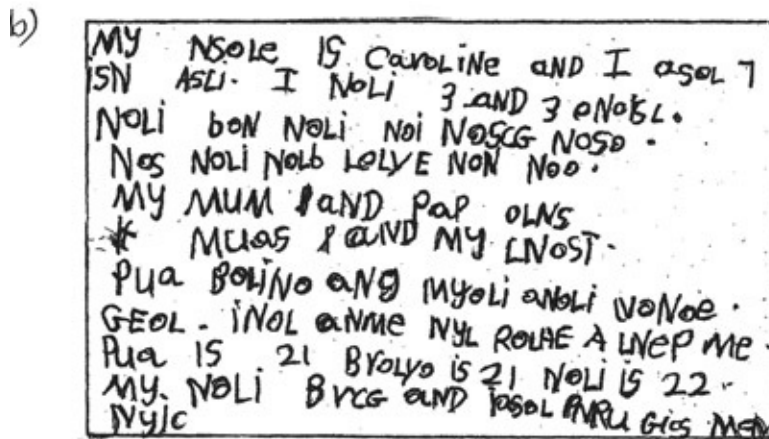 b)
MY NSOLE IS CaroLiNe aND I asoL 7
ISN ASLI. I NOLi 3 AND 3
NOLi bON NOLi NOi NOSCG NOSO.
NOS NOLi NOLb LOLYE NON NOO.
MY MUM aND PaP OLNS
MUAS aND MY LNOST.
PUa BOLiNO aNG MYOLi aNOLi
GEOL. iNOL aNME NYL ROLHE A LNEP Me.
PUa IS 21 BrOLYO iS 21 NOLi iS 22.
MY. NOLi BrCG aND GiOS MEM
NYJC